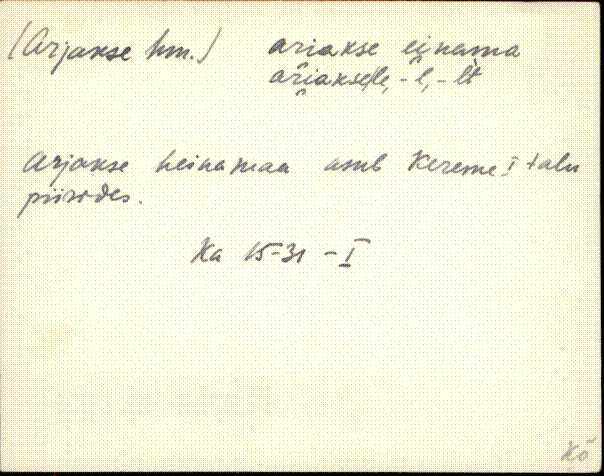 (Arjakse hm.) ariakse einama
ariakse/le, -l, -lt
Arjakse heinamaa asub Kereme I talu
piirides.
Ka 15-31 - I
Kõ